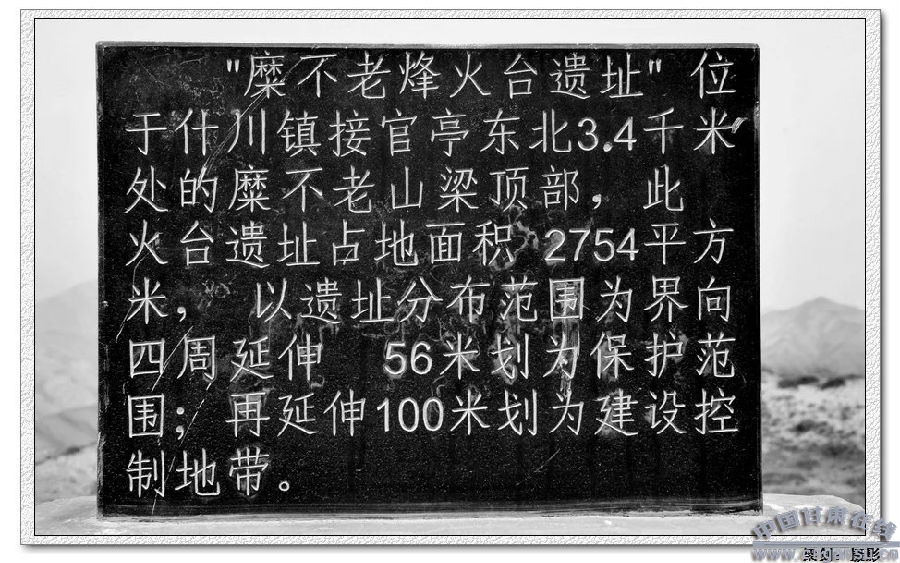 "糜不老烽火台遗址" 位
于什川镇接官亭东北3.4千米
处的糜不老山梁顶部，此
火台遗址占地面积 2754平方
米， 以遗址分布范围为界向
四周延伸 56米划为保护范
围；再延伸100米划为建设控
制地带。
中国甘肃在线